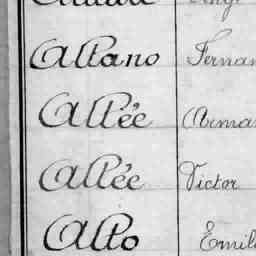 Altano Fernan
Allée Arma
Allée Victor
Alto Emil